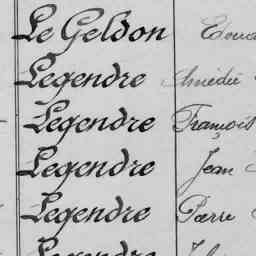 Le Geldon
Legendre Amédée
Legendre François
Legendre Jean
Legendre Pierre
Legendre